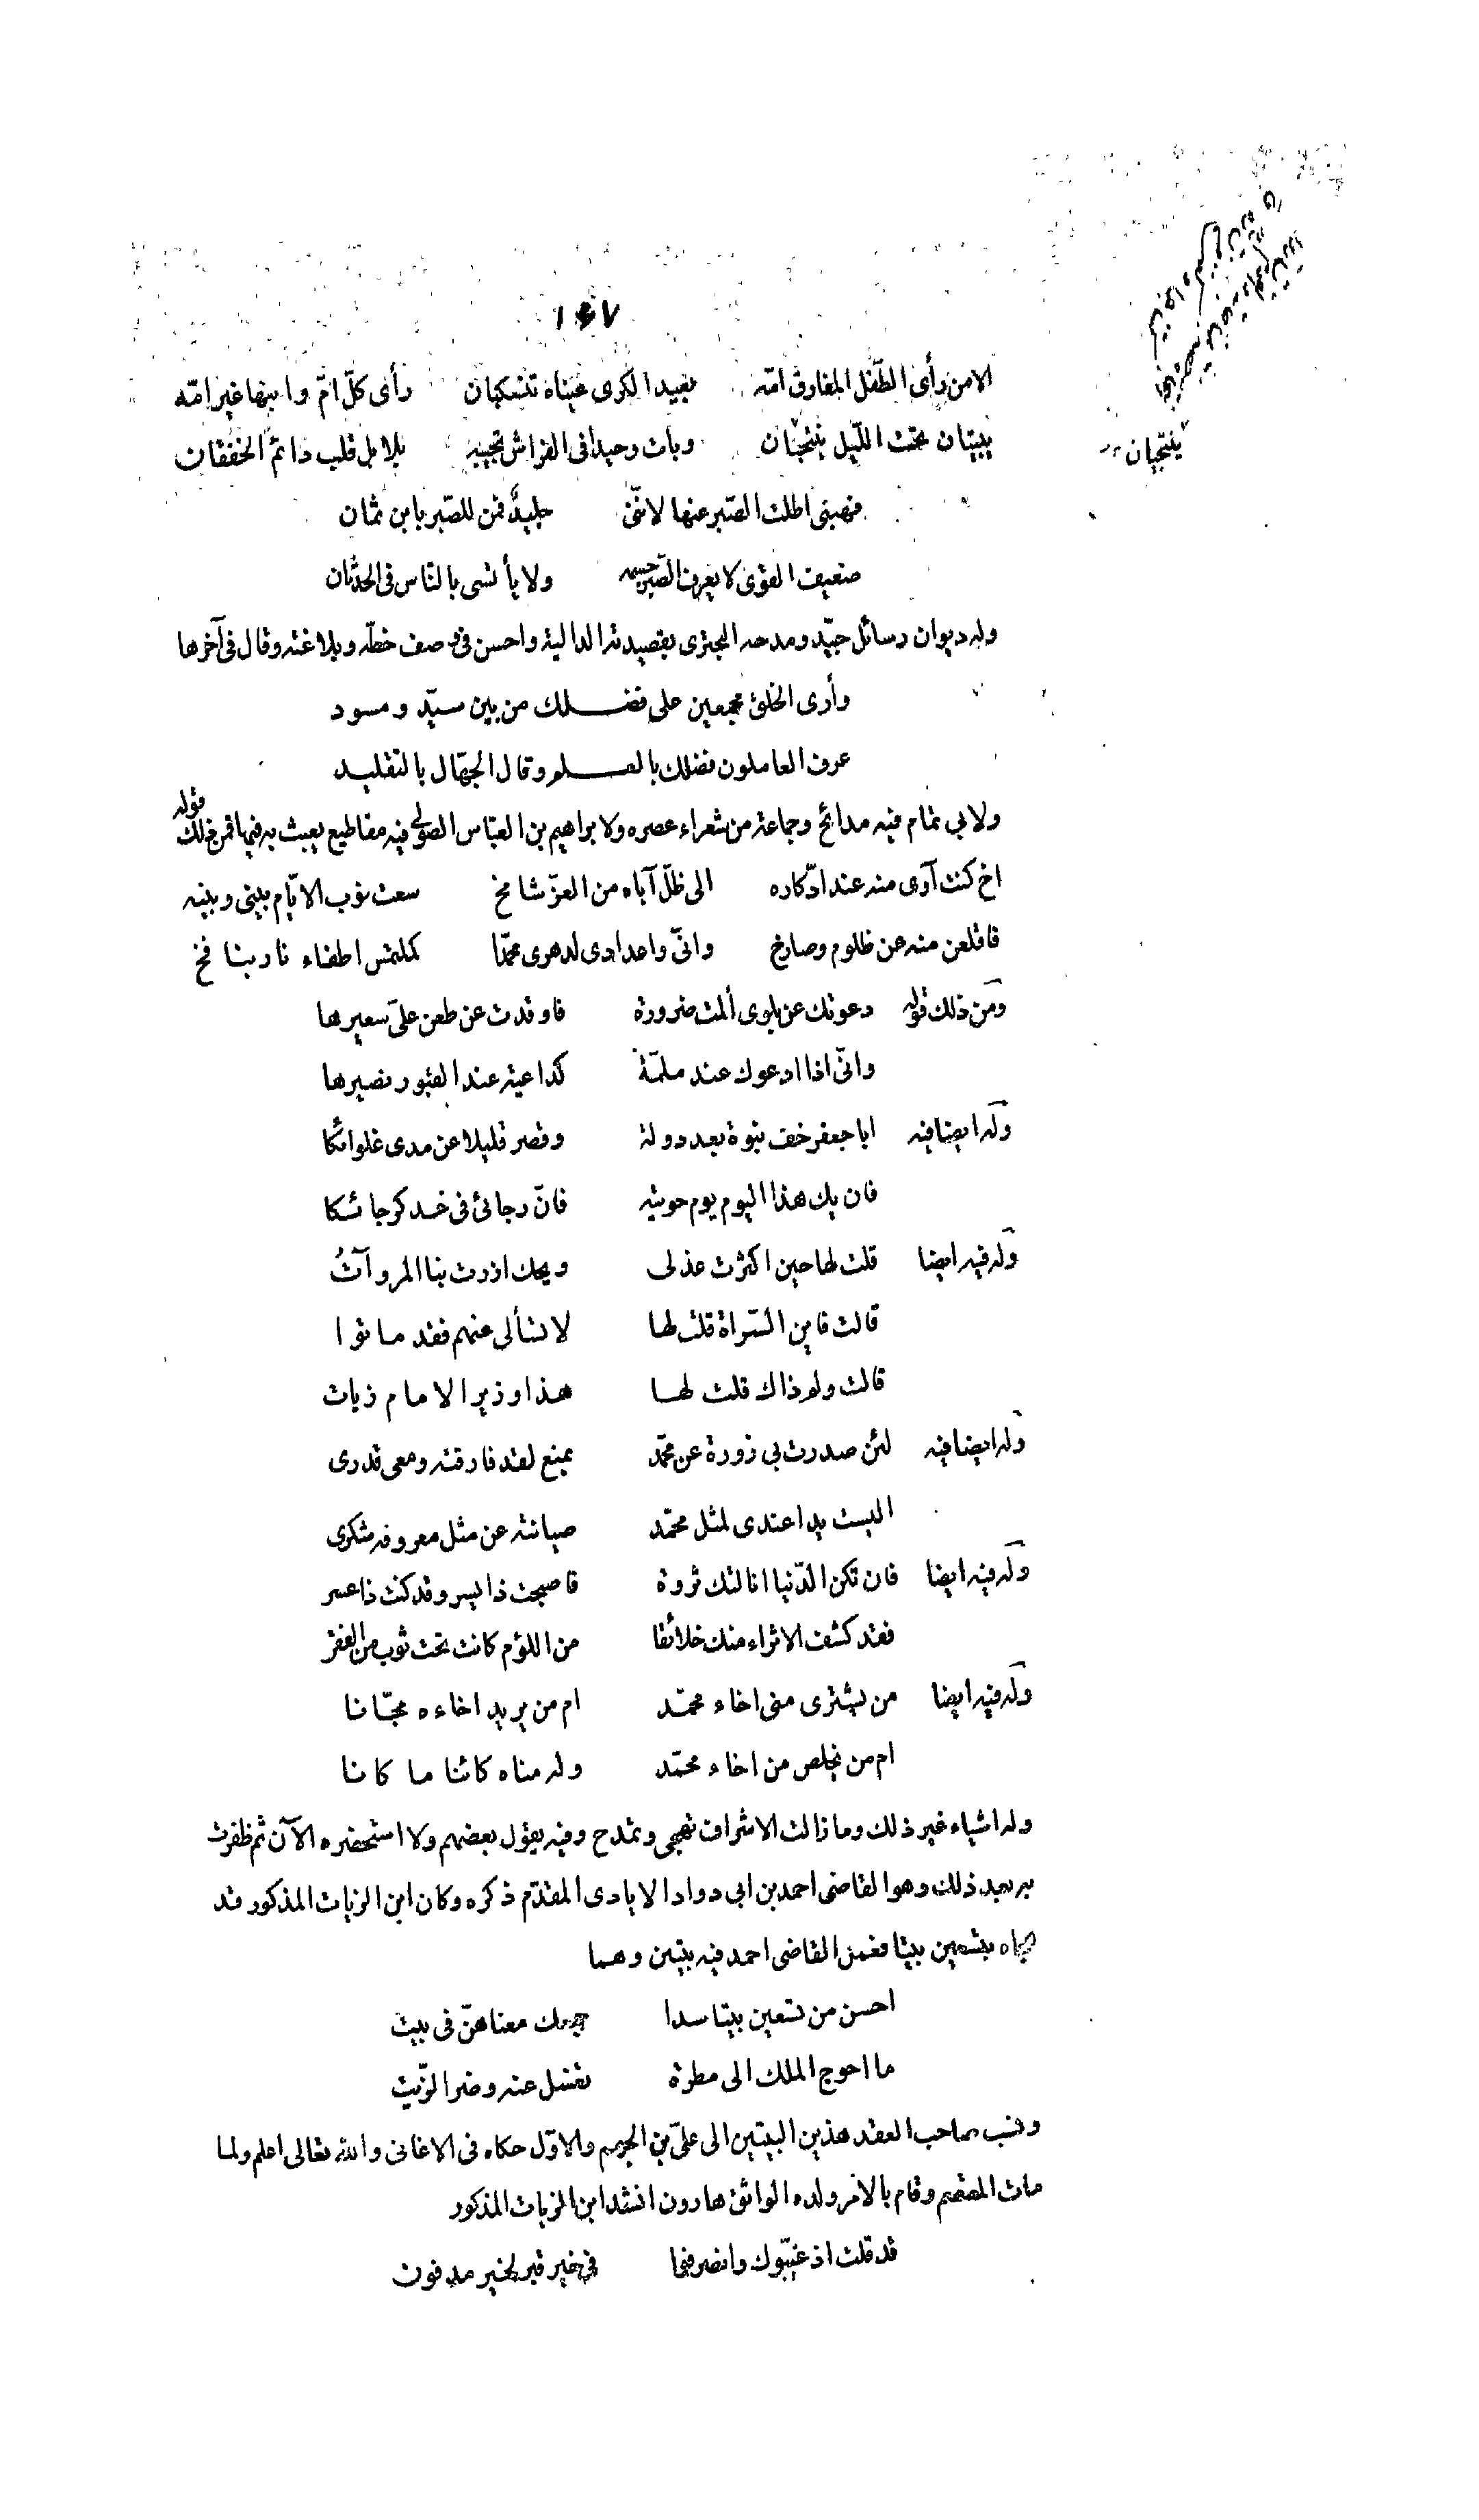 ١٤٧
الا من رأى الطّفل المفارق امّه بعيد الكرى عيناه تنسكبان رأى كلّ امّ وابنها غير امّه
يبيتان تحت اللّيل ينتجيان وبات وحيدا فى الفراش تجيبه بلابل قلب دائم الخفقان
ينتجيان
فهبنى اطلت الصّبر عنها لانّنى جليدٌ فمن للصّبر بابن ثمان
ضعيف القوى لا يعرف الصّبر جسمه ولا يأتسى بالنّاس فى الحدثان
وله ديوان رسائل جيّد ومدحه البحترى بقصيدته الدالية واحسن فى وصف خطّه وبلاغته وقال فى آخرها
وأرى الخلق مجمعين على فضلك من بين سيّد ومسود
عرف العاملون فضلك بالعلم وقال الجهّال بالتقليد
ولابي تمام فيه مدائح وجماعة من شعراء عصره ولابراهيم بن العبّاس الصولى فيه مقاطيع يعبث به فيها فمن ذلك قوله
اخ كنت آوى منه عند ادّكاره الى ظلّ آباه من العزّ شامخ سعت نوب الايّام بينى وبينه
فاقلعن منه عن ظلوم وصارخ وانّى واعدادى لدهرى محمّدا كملتمس اطفاء نار بنافخ
ومن ذلك قوله دعوتك عن بلوى ألمت ضرورة فاوقدت عن طعن علىّ سعيرها
وانّى اذا ادعوك عند ملمّة كداعية عند القبور نصيرها
وله ايضا فيه ابا جعفر خف نبوة بعد دولة وقصر قليلا عن مدى غلوائكا
فان يك هذا اليوم يوم حويته فانّ رجائى فى غد كرجائكا
وله فيه ايضا قلت لها حين اكثرت عذلى ويحك ازرت بنا المروآتُ
قالت فاين السّراة قلت لها لا تسألى عنهم فقد ماتوا
قالت ولم ذاك قلت لها هذا وزير الامام زيات
وله ايضا فيه لئن صدرت بي زورة عن محمّد بمنع لقد فارقته ومعى قدرى
اليست يدا عندى لمثل محمّد صيانته عن مثل معروفه شكرى
وله فيه ايضا فان تكن الدّنيا انالتك ثروة فاصبحت ذا يسر وقد كنت ذا عسر
فقد كشف الاثراء منك خلائقا من اللؤم كانت تحت ثوب من الفقر
وله فيه ايضا من يشترى منى اخاء محمّد ام من يريد اخاءه مجّانا
ام من يخلص من اخاء محمّد وله مناه كائنا ما كانا
وله اشياء غير ذلك وما زالت الاشراف تهجى وتمدح وفيه يقول بعضهم ولا استحضره الآن ثم ظفرت
به بعد ذلك وهو القاضى احمد بن ابى دواد الايادى المقدّم ذكره وكان ابن الزيات المذكور قد
هجاه بتسعين بيتا فعمل القاضى احمد فيه بيتين وهما
احسن من تسعين بيتا سدا جمعك معناهنّ فى بيت
ما احوج الملك الى مطرة تغسل عنه وضر الزّيت
ونسب صاحب العقد هذين البيتين الى علىّ بن الجهم والاوّل حكاه فى الاغانى والله تعالى اعلم ولما
مات المعتصم وقام بالامر ولده الواثق هارون انشد ابن الزيات المذكور
قد قلت اذ غيّبوك وانصرفوا فى خير قبر لخير مدفون